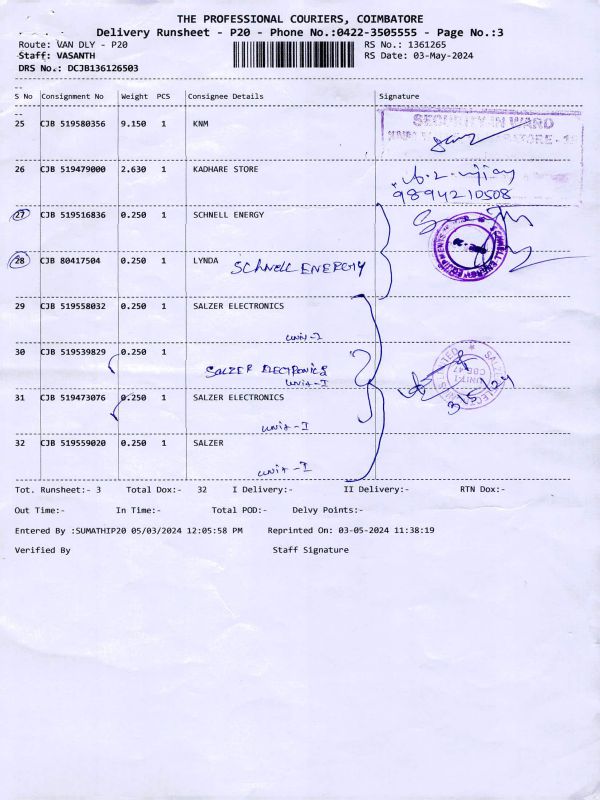 THE PROFESSIONAL COURIERS, COIMBATORE
Delivery Runsheet - P20 - Phone No.:0422-3505555 - Page No.:3
Route: VAN DLY - P20 RS No.: 1361265
Staff: VASANTH RS Date: 03-May-2024
DRS No.: DCJB136126503
S No Consignment No Weight PCS Consignee Details Signature
25 CJB 519580356 9.150 1 KNM
SECURITY IN WARD
26 CJB 519479000 2.630 1 KADHARE STORE
9894210508
27 CJB 519516836 0.250 1 SCHNELL ENERGY
28 CJB 80417504 0.250 1 LYNDA SCHNELL ENERGY
SCHNELL ENERGY EQUIPMENTS
29 CJB 519558032 0.250 1 SALZER ELECTRONICS
unit-I
30 CJB 519539829 0.250 1
SALZER ELECTRONICS
unit-I
3/5/24
31 CJB 519473076 0.250 1 SALZER ELECTRONICS
unit-I
32 CJB 519559020 0.250 1 SALZER
unit-I
Tot. Runsheet:- 3 Total Dox:- 32 I Delivery:- II Delivery:- RTN Dox:-
Out Time:- In Time:- Total POD:- Delvy Points:-
Entered By :SUMATHIP20 05/03/2024 12:05:58 PM Reprinted On: 03-05-2024 11:38:19
Verified By Staff Signature